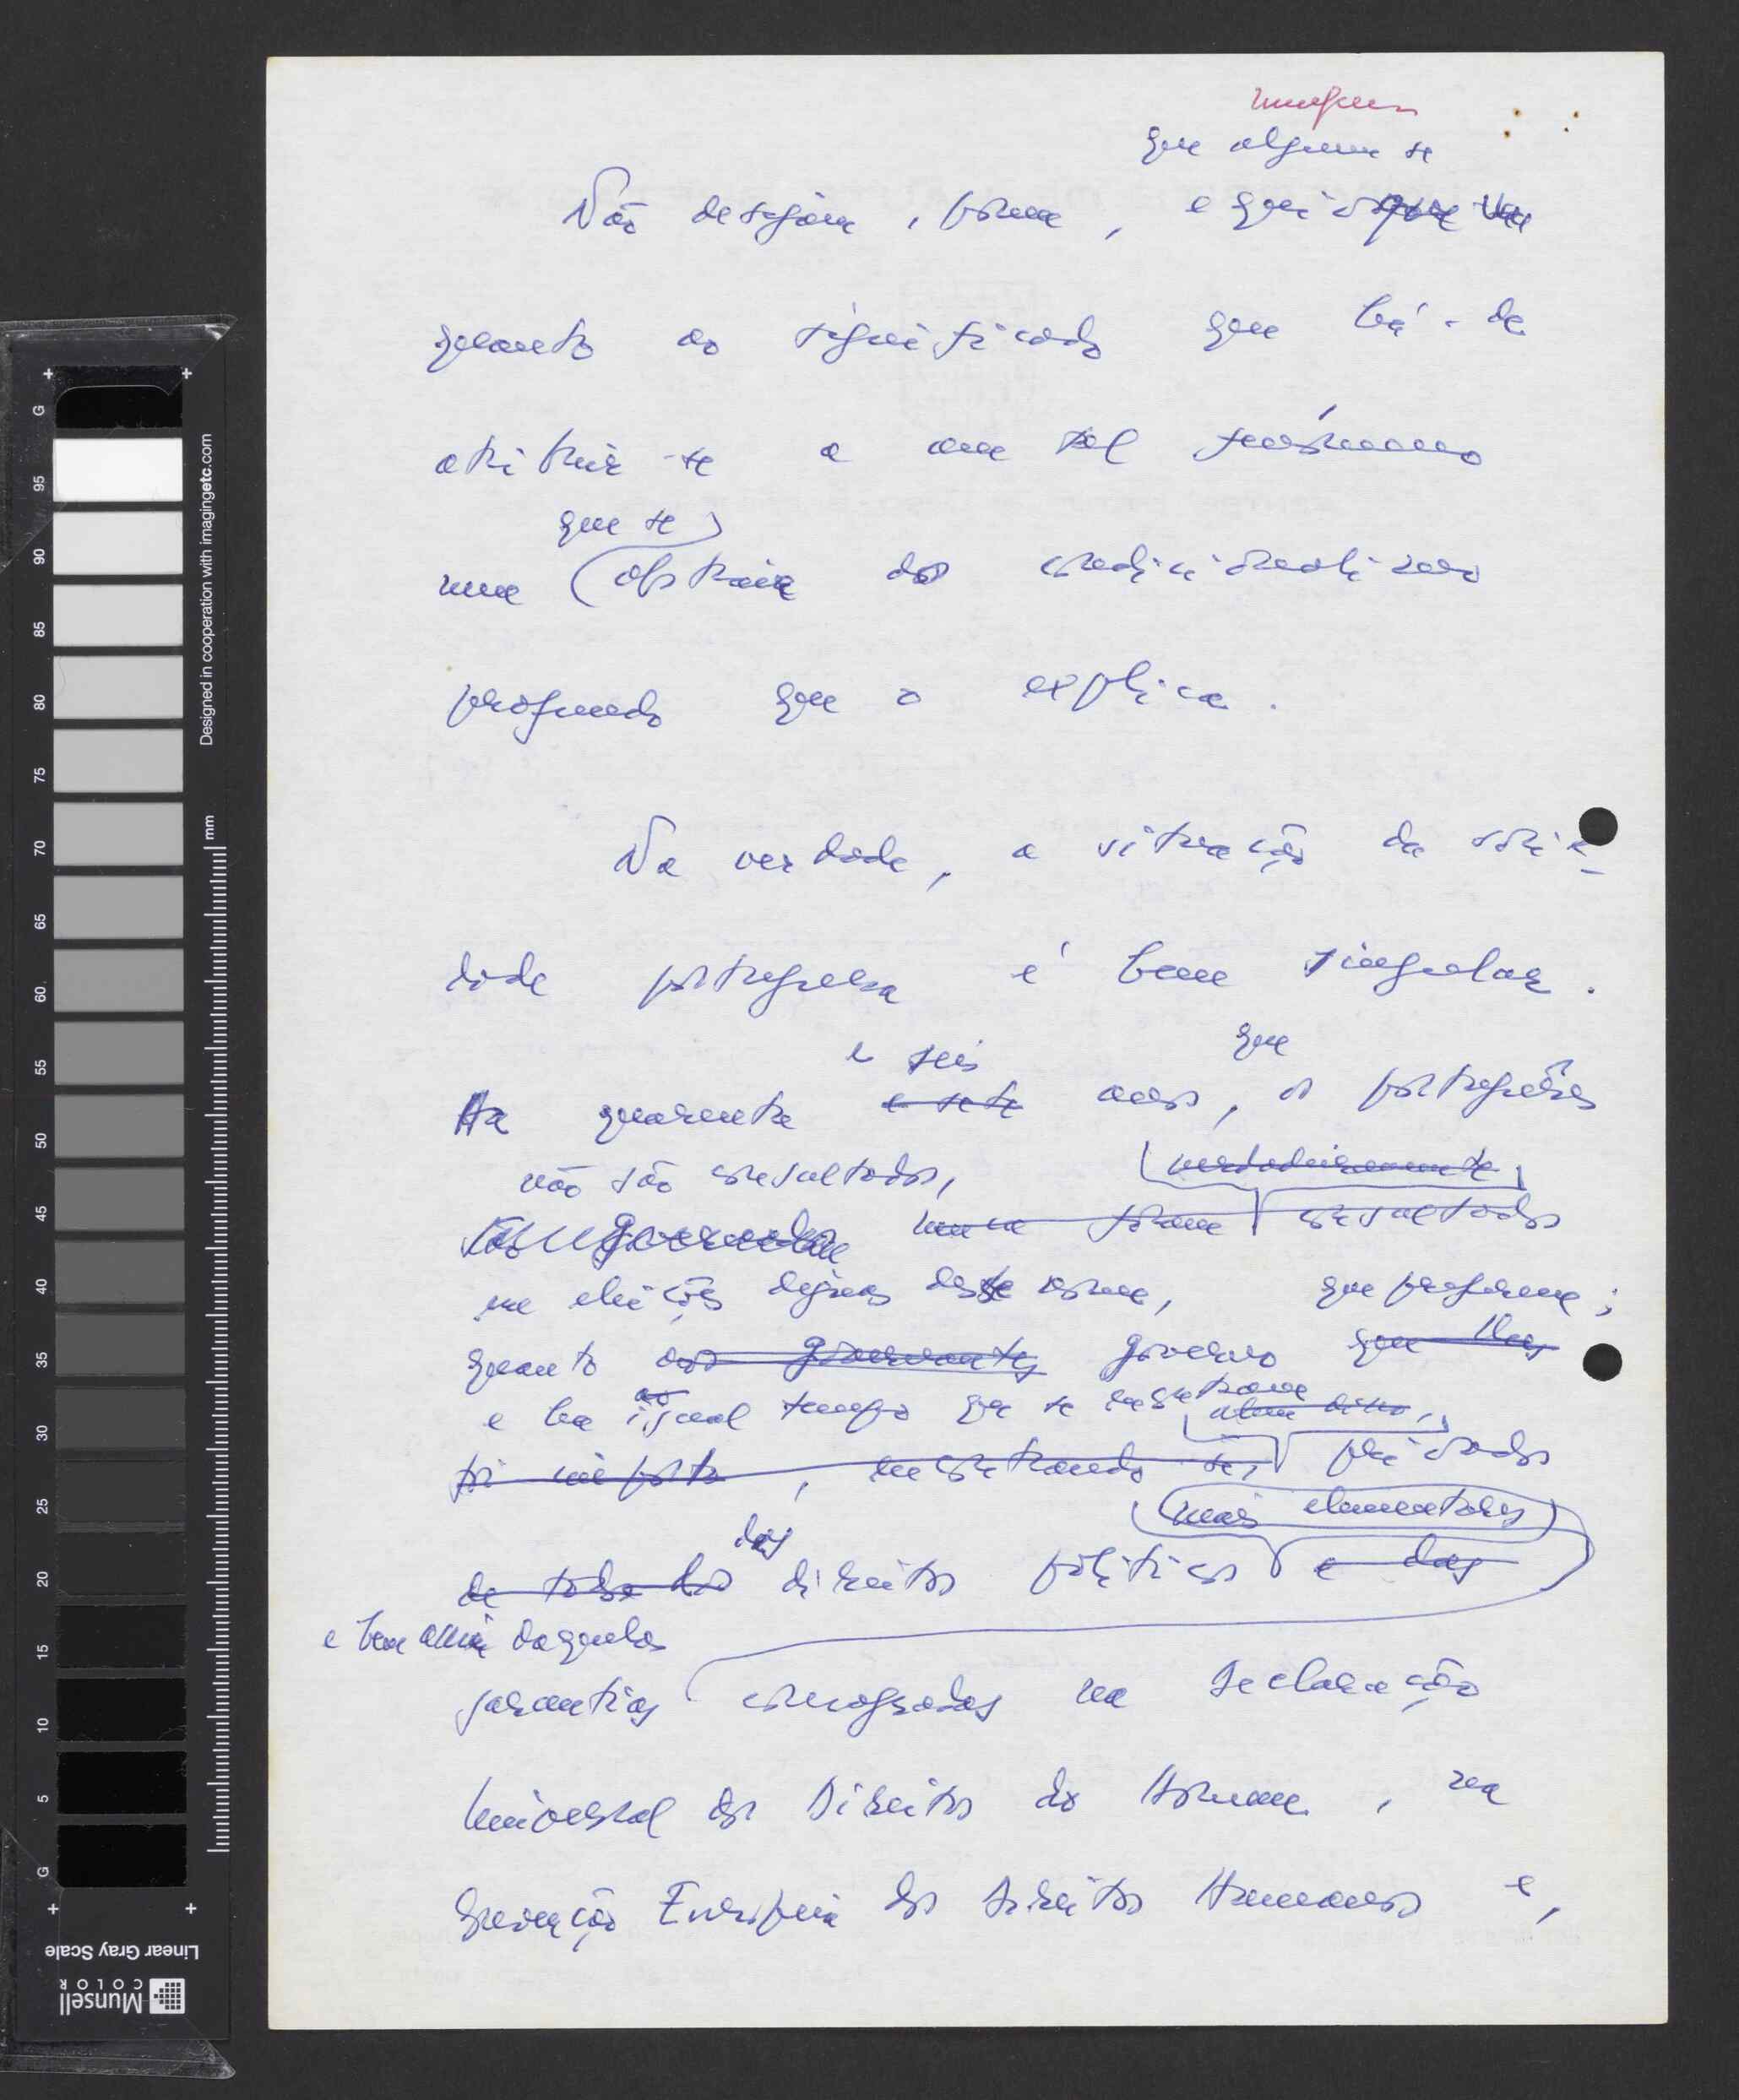 que alguem se
Não desejava, porém,
quanto ao significado que há-de
atribuir-se a um tal fenómeno
que se
num abstraia do condicionalismo
profundo que o explica.
Na verdade, a situação da socie-
dade portuguesa é bem singular.
e seis que
Há quarenta e sete anos, os portugueses
não são consultados, verdadeiramente
numa forma consultados
em eleições dignas desse nome,
quanto aos governantes governo que lhes
e há igual tempo que se encontram além disso,
foi imposto, encontrando-se, privados
mais elementares
de todos os dos direitos políticos e das
e bem assim daquelas
garantias consagradas na Declaração
Universal dos Direitos do Homem, na
Convenção Europeia dos Direitos Humanos e,
G 95 90 85 80 75 70 65 60 55 50 45 40 35 30 25 20 15 10 5 G
mm
Designed in cooperation with imagingetc.com
Linear Gray Scale
Munsell
COLOR